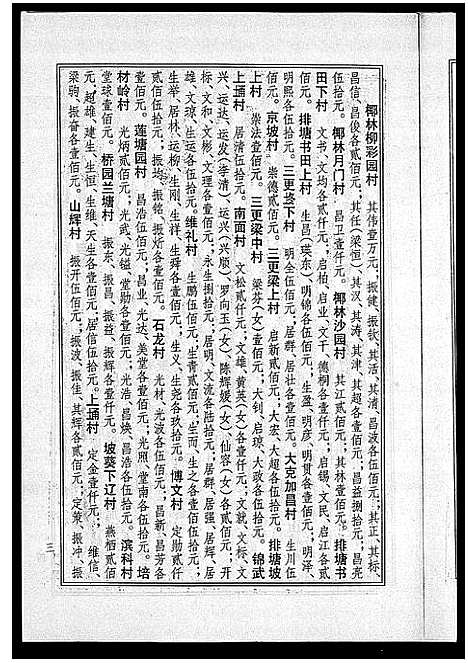 椰林柳彩园村　其伟壹万元；振健、振钦、其活、其清、昌波各伍佰元；其正、其标、
昌信、昌俊各贰佰元；其任(梁恒)、其汉、其涛、其津、其超各壹佰元；昌益捌拾元；昌亮
伍拾元。椰林月门村　昌卫壹仟元。椰林沙园村　其江贰佰元；其林壹佰元。排塘书
田下村　文书、文均各贰仟元；启柏、启业、文千、德桐各壹佰元；启锡、文民、启江各贰
佰元。排塘书田上村　生昌(瑛东)、明锦各伍佰元；生盈、明彦、明贯各壹佰元；明泽、
明熙各伍佰元。三更峑下村　明全伍佰元；居群、居壮各壹佰元。大克加昌村　生川伍
佰元。京坡村　崇德贰佰元。三更梁上村　启新贰佰元；大宏、大超各伍拾元。排塘坡
上村　崇法壹佰元。三更梁中村　梁芬(女)壹佰元；大钊、启琼、大政各伍拾元。锦武
上埇村　居清伍拾元。南面村　文松贰仟元；文雄、黄英(女)各壹仟元；文就、文标、文
兴、运达、运发(李清)、运兴(兴顺)、罗向玉(女)、陈辉媛(女)、仙容(女)各贰佰元；开
标、文和、文彬、文理各壹佰元；永生捌拾元；居明、文流各陆拾元；居群、居强、居辉、居
雄、文琼、生运各伍拾元。维礼村　生鹏伍佰元；生青贰佰元；生而、生之各壹佰伍拾元；
生举、居林、运柳、生刚、生祥、生舜各壹佰元；生义、生尧各玖拾元。博文村　定勋贰仟
贰佰元；振均、振铭、振炘各壹佰元。石龙村　光材、光波各伍佰元；昌新、昌芳各
壹佰元。莲塘园村　昌浩伍佰元；昌业、光达、美堂各壹佰元；光照、堂南各伍拾元。培
材岭村　光炳贰佰元；光武、光镒、堂勋各壹佰元；光浩、昌焕、昌浩各伍拾元。滨科村
堂球壹佰元。桥园兰塘村　振东、振昌、振益、振辉各壹仟元。坡葵下辽村　燕栢贰佰
元；超雄、建生、生恒、生维、天生各壹佰元；居信伍拾元。上埇村　定金壹仟元；维信、
梁驹、振奋各壹佰元。山辉村　振开伍佰元；振波、振佳、其辉各贰佰元；定策、振冲、振
三